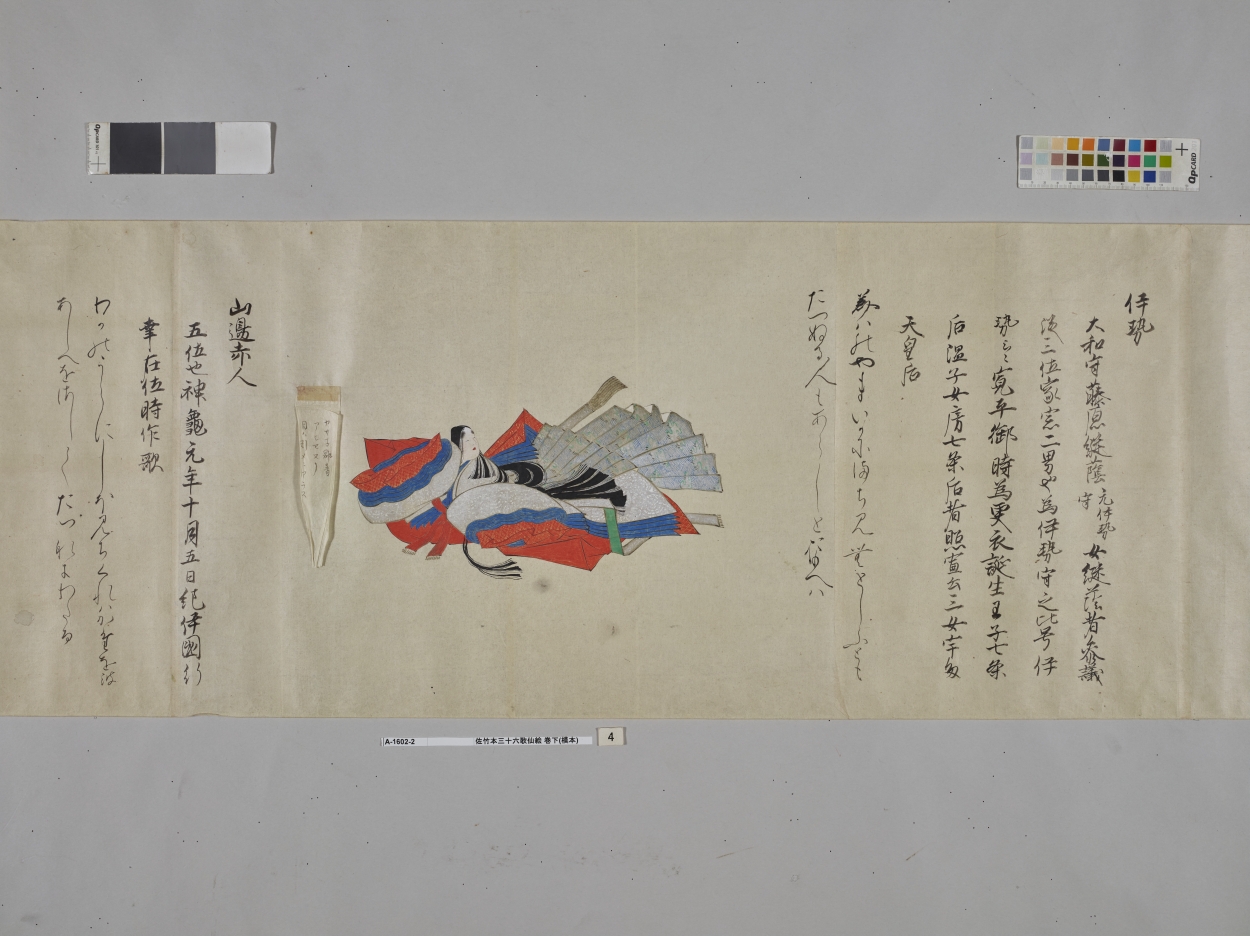 伊勢
大和守藤原継蔭 元伊勢守 女継蔭者参議
従三位家宗二男也為伊勢守之比号伊
勢云々寛平御時為更衣誕生王子七条
后温子女房七条后者昭宣公三女宇多
天皇后
みわのやまいかにまちみむとしふとも
たつぬる人もあらしとおもへは
山邊赤人
五位也神龜元年十月五日紀伊國行
幸在位時作歌
わかのうらにしほみちくれはかたをなみ
あしへをさしてたつなきわたる
A-1602-2 佐竹本三十六歌仙絵 巻下(模本)
4